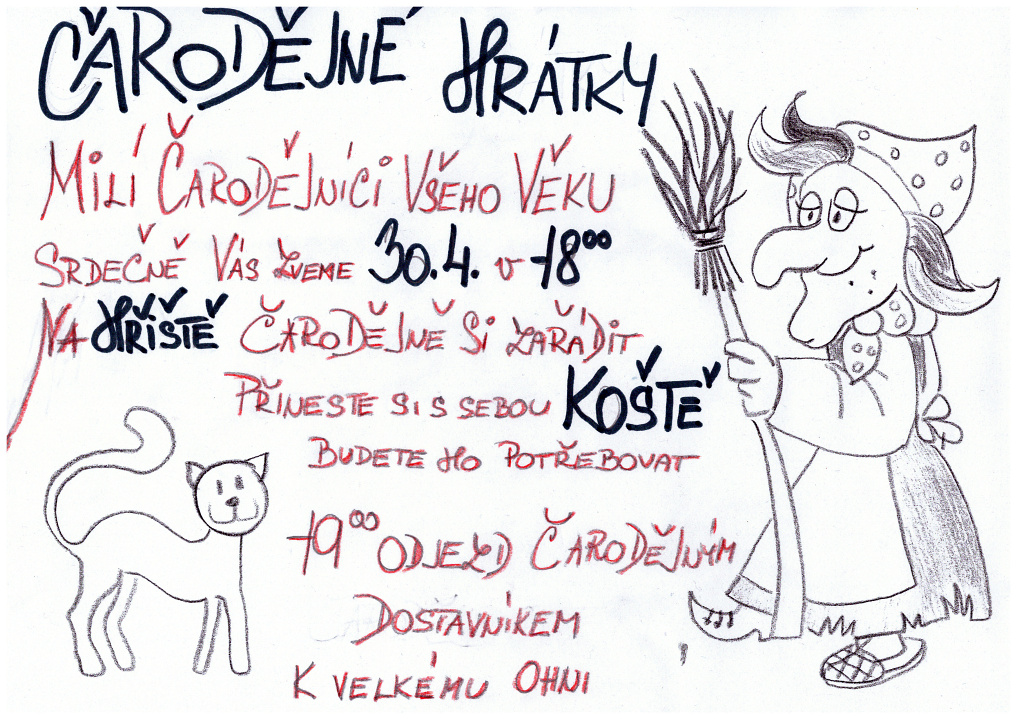 ČARODĚJNÉ HRÁTKY
MILÍ ČARODĚJNÍCI VŠEHO VĚKU
SRDEČNĚ VÁS ZVEME 30.4. v 18⁰⁰
NA HŘIŠTĚ ČARODĚJNĚ SI ZAŘÁDIT
PŘINESTE SI S SEBOU KOŠTĚ
BUDETE HO POTŘEBOVAT
19⁰⁰ ODJEZD ČARODĚJNÝM
DOSTAVNÍKEM
K VELKÉMU OHNI